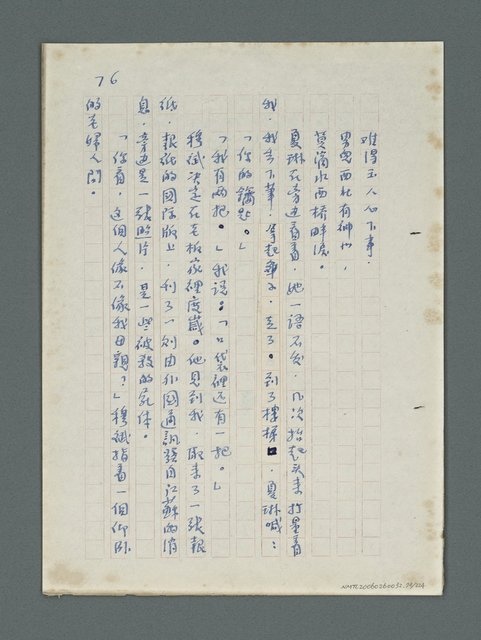 76
难得玉人心下事．
男兒西北有神州，
莫滴水西橋畔淚。
夏琳在旁边看着．她一語不发．几次抬起头来打量着
我．我丢下筆．拿起傘子．走了。到了樓梯口．夏琳喊：
「你的鑰匙。」
「我有两把。」我說：「口袋裡还有一把。」
穆斌决定在老板家裡度歲。他見到我．取来了一張報
纸．報纸的國际版上．刊了一则由外國通訊發自江蘇的消
息．旁边是一張照片．是一些被殺的死体。
「你看．这個人像不像我母親？」穆斌指着一個仰卧
的老婦人問。
NMTL20060260052 79/224